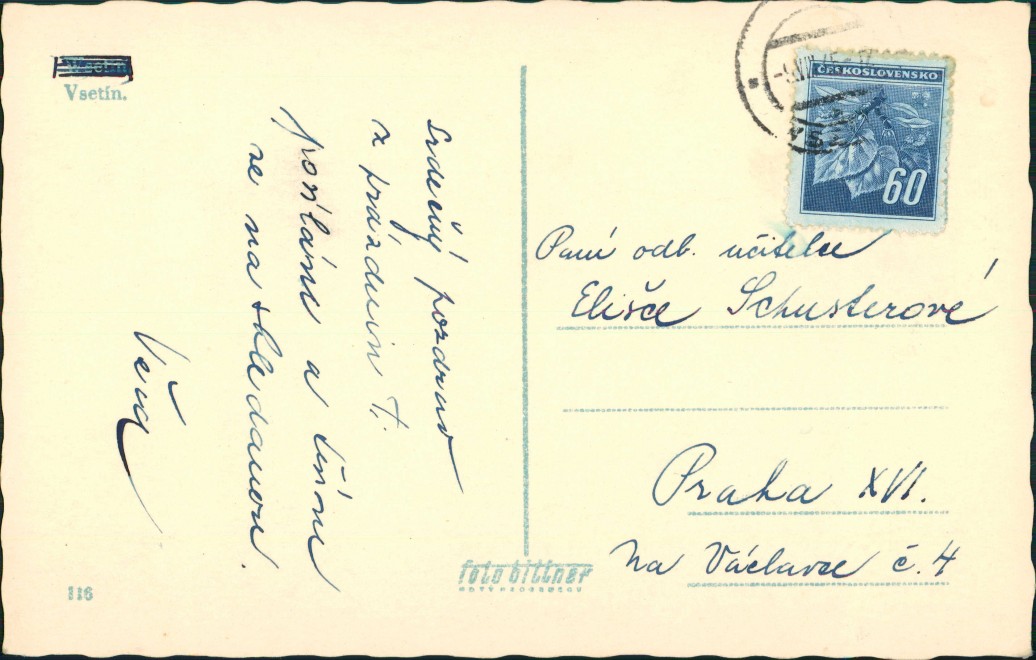 Vsetín.
Srdečný pozdrav
z prázdnin Ti
posíláme a těšíme
se na shledanou.
Věra
116
foto bittner
ČESKOSLOVENSKO
60
Paní odb. učitelce
Elišce Schusterové
Praha XVI.
Na Václavce č. 4